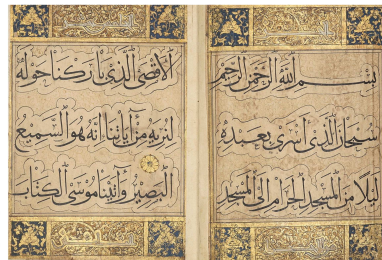 بِسْمِ اللهِ الرَّحْمٰنِ الرَّحِيْمِ
سُبْحَانَ الَّذِي أَسْرَى بِعَبْدِهِ
لَيْلًا مِنَ الْمَسْجِدِ الْحَرَامِ إِلَى الْمَسْجِدِ
الْأَقْصَى الَّذِي بَارَكْنَا حَوْلَهُ
لِنُرِيَهُ مِنْ آيَاتِنَا إِنَّهُ هُوَ السَّمِيعُ
الْبَصِيرُ وَآتَيْنَا مُوسَى الْكِتَابَ